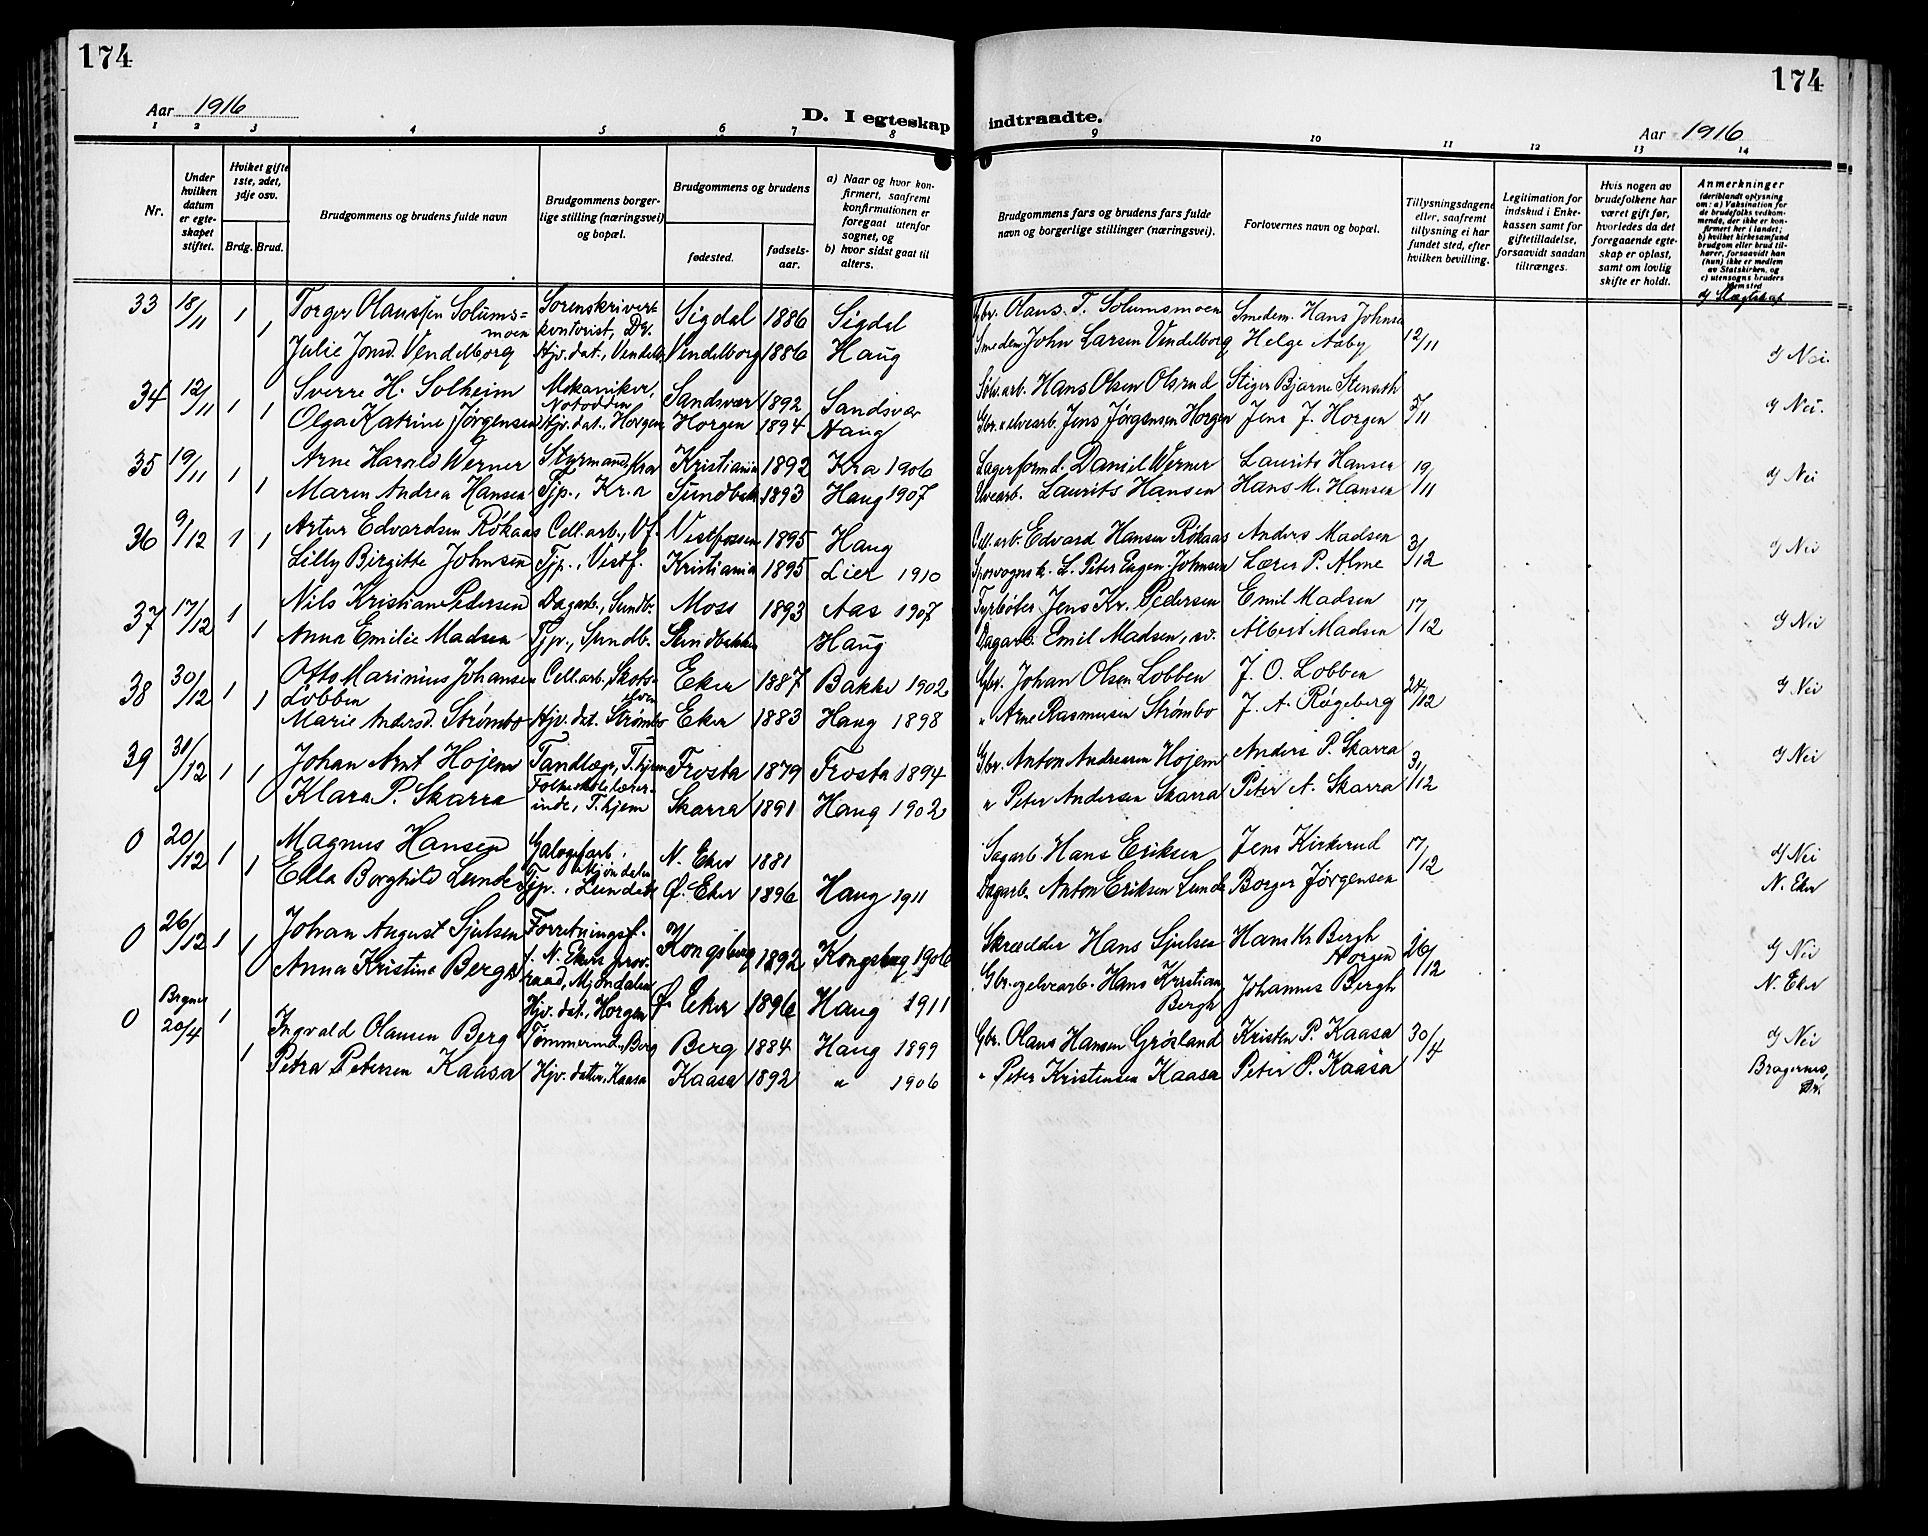 174
174
Aar 1916
D. I egteskap
indtraadte.
Aar 1916
1 2 3 4 5 6 7 8
9 10 11 12 13 14
Nr.
Under hvilken datum er egteskapet stiftet.
Hvilket gifte 1ste, 2det, 3dje osv.
Brdg. Brud.
Brudgommens og brudens fulde navn
Brudgommens borgerlige stilling (næringsvei) og bopæl.
Brudgommens og brudens
fødested.
fødselsaar.
a) Naar og hvor konfirmert, saafremt konfirmationen er foregaat utenfor sognet, og
b) hvor sidst gaat til alters.
Brudgommens fars og brudens fars fulde navn og borgerlige stillinger (næringsvei).
Forlovernes navn og bopæl.
Tillysningsdagene eller, saafremt tillysning ei har fundet sted, efter hvilken bevilling.
Legitimation for indskud i Enkekassen samt for giftetilladelse, forsaavidt saadan tiltrænges.
Hvis nogen av brudefolkene har været gift før, hvorledes da det foregaaende egteskap er opløst, samt om lovlig skifte er holdt.
Anmerkninger (deriblandt oplysning om: a) Vaksination for de brudefolks vedkommende, der ikke er konfirmert her i landet; b) hvilket kirkesamfund brudgom eller brud tilhører, forsaavidt han (hun) ikke er medlem av Statskirken, og c) utensogns bruders hjemsted
d) Slægtskap
33 18/11 1 Torger Olaussen Solumsmoen Sorenskriverkontorist, Dr. Sigdal 1886 Sigdal Gbr. Olaus T. Solumsmoen Smedem. Hans Johnsen 12/11
1 Julie Jonsd. Vendelborg Hjv. dat., Vendelb. Vendelborg 1886 Haug Smedem John Larsen Vendelborg Helge Aaby d) Nei.
34 12/11 1 Sverre H. Solheim Mekaniker, Notodden Sandsvær 1892 Sandsvær Sølvarb. Hans Olsen Olsrud Stiger Bjarne Stenseth 5/11
1 Olga Katrine Jørgensen Hjv. dat., Horgen Horgen 1894 Haug Gbr. o elvearb. Jens Jørgensen Horgen Jens J. Horgen d) Nei.
35 19/11 1 Arne Harald Werner Styrmand, Kra Kristiania 1892 Kra 1906 Lagerformd. Daniel Werner Laurits Hansen 19/11
1 Maren Andrea Hansen Tjp., Kr.a Sundbak. 1893 Haug 1907 Elvearb. Laurits Hansen Hans M. Hansen d) Nei
36 9/12 1 Artur Edvardsen Røkaas Cell.arb., Vf. Vestfossen 1895 Haug Cell.arb. Edvard Hansen Røkaas Anders Madsen 3/12
1 Lilly Birgitte Johnsen Tjp., Vestf. Kristiania 1895 Lier 1910 Sporvognsk. L. Peter Eugen Johnsen Lærer P. Alme d) Nei
37 17/12 1 Nils Kristian Pedersen Dagarb., Sundb. Moss 1893 Aas 1907 Fyrbøter Jens Kr. Pedersen Emil Madsen 17/12
1 Anna Emilie Madsen Tjp., Sundb. Sundbakken Haug Dagarb. Emil Madsen, sv. Albert Madsen d) Nei
38 30/12 1 Otto Marinius Johansen Lobben Cell.arb. Skotselven Eker 1887 Bakke 1902 Gbr. Johan Olsen Lobben J. O. Lobben 24/12
1 Marie Andersd. Strømbo Hjv. dat. Strømbo Eker 1883 Haug 1898 " Arne Rasmussen Strømbo J. A. Røgeberg d) Nei
39 31/12 1 Johan Arnt Hojem Tandlæge, T.hjem Frosta 1879 Frosta 1894 Gbr. Anton Andreasen Hojem Anders P. Skarra 31/12
1 Klara P. Skarra Folkeskolelærerinde, T.hjem Skarra 1891 Haug 1902 " Peter Andersen Skarra Peter A. Skarra d) Nei
0 20/12 1 Magnus Hansen Galogefarb., Mjøndalen N. Eker 1881 Sagarb. Hans Eriksen Jens Kirkerud 17/12 d) Nei
1 Ella Borghild Lunde Tjp., Lundeb. Ø. Eker 1896 Haug 1911 Dagarb. Anton Eriksen Lunde Borger Jørgensen N. Eker
0 26/12 1 Johan August Sjulsen Forretningsf. f. N. Ekers prov.raad, Mjøndalen Kongsberg 1892 Kongsberg 1906 Skrædder Hans Sjulsen Hans Kr. Bergh Horgen 26/12 d) Nei
1 Anna Kristine Bergh Hjv. dat., Horgen Ø. Eker 1896 Haug 1911 Gbr. og elvearb. Hans Kristian Bergh Johannes Bergh N. Eker
0 Brgnes 20/4 1 Ingvald Olausen Berg Tømmermd., Berg Berg 1884 Haug 1899 Gbr. Olaus Hansen Grøsland Kristen P. Kaasa 30/4 d) Nei
1 Petra Petersen Kaasa Hjv. datter, Kaasa Kaasa 1892 " 1906 " Peter Kristensen Kaasa Peter P. Kaasa Bragernes, Dr.